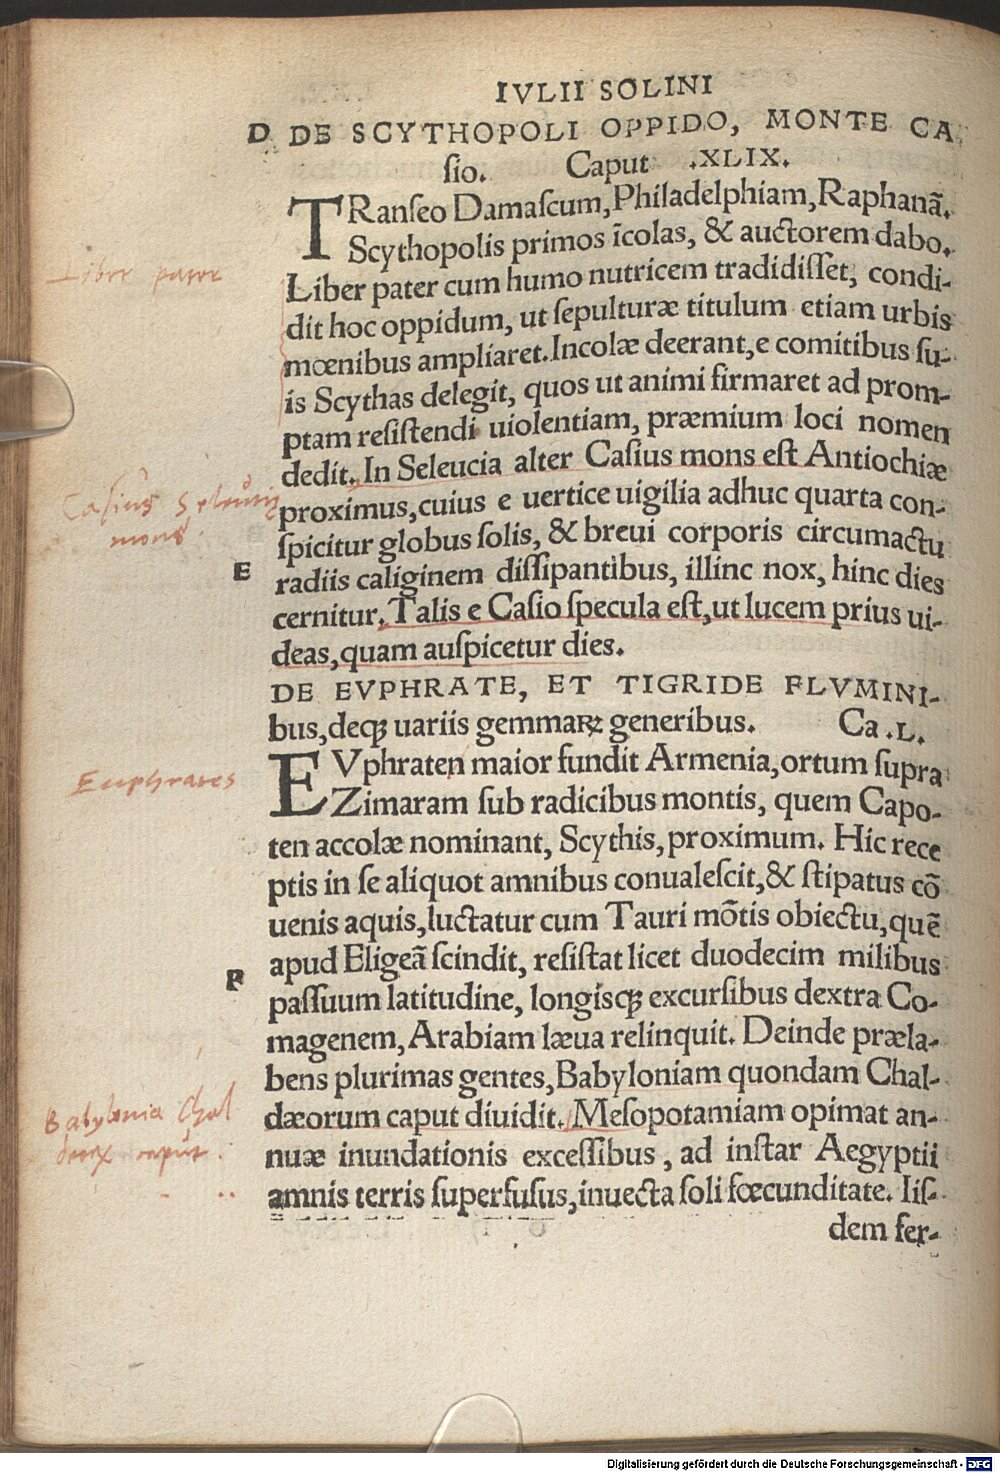 IVLII SOLINI
D DE SCYTHOPOLI OPPIDO, MONTE CA
ſio. Caput .XLIX.
TRanſeo Damaſcum, Philadelphiam, Raphanã.
Scythopolis primos ĩcolas, & auctorem dabo.
Liber pater
Liber pater cum humo nutricem tradidiſſet, condi-
dit hoc oppidum, ut ſepulturæ titulum etiam urbis
mœnibus ampliaret. Incolæ deerant, e comitibus ſu-
is Scythas delegit, quos ut animi firmaret ad prom-
ptam reſiſtendi uiolentiam, præmium loci nomen
dedit. In Seleucia alter Caſius mons eſt Antiochiæ
Caſius
mons
proximus, cuius e uertice uigilia adhuc quarta con-
ſpicitur globus ſolis, & breui corporis circumactu
E
radiis caliginem diſſipantibus, illinc nox, hinc dies
cernitur. Talis e Caſio ſpecula eſt, ut lucem prius ui-
deas, quam auſpicetur dies.
DE EVPHRATE, ET TIGRIDE FLVMINI-
bus, deqꝫ uariis gemmaꝝ generibus. Ca .L.
Euphrates
EVphraten maior fundit Armenia, ortum ſupra
Zimaram ſub radicibus montis, quem Capo-
ten accolæ nominant, Scythis, proximum. Hic rece
ptis in ſe aliquot amnibus conualeſcit, & ſtipatus cõ
uenis aquis, luctatur cum Tauri mõtis obiectu, quẽ
apud Eligeã ſcindit, reſiſtat licet duodecim milibus
F
paſſuum latitudine, longiſqꝫ excurſibus dextra Co-
magenem, Arabiam læua relinquit. Deinde præla-
bens plurimas gentes, Babyloniam quondam Chal-
Babylonia Chal
caput
dæorum caput diuidit. Meſopotamiam opimat an-
nuæ inundationis exceſſibus, ad inſtar Aegyptii
amnis terris ſuperfuſus, inuecta ſoli fœcunditate. Iiſ-
dem fer-
Digitalisierung gefördert durch die Deutsche Forschungsgemeinschaft - DFG